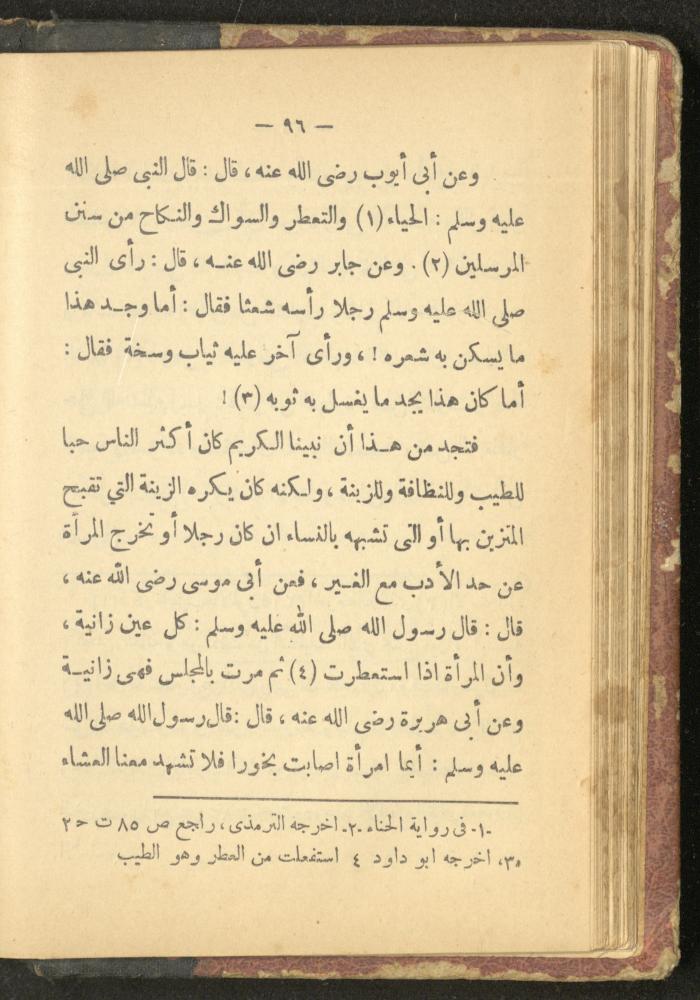 — ٩٦ —
وعن أبى أيوب رضى الله عنه ، قال : قال النبى صلى الله
عليه وسلم : الحياء (١) والتعطر والسواك والنكاح من سنن
المرسلين (٢) . وعن جابر رضى الله عنه ، قال : رأى النبى
صلى الله عليه وسلم رجلا رأسه شعثا فقال : أما وجد هذا
ما يسكن به شعره ! ، ورأى آخر عليه ثياب وسخة فقال :
أما كان هذا يجد ما يغسل به ثوبه (٣) !
فتجد من هذا أن نبينا الكريم كان أكثر الناس حبا
للطيب وللنظافة وللزينة ، ولكنه كان يكره الزينة التي تقبح
المتزين بها أو التى تشبهه بالنساء ان كان رجلا أو تخرج المرأة
عن حد الأدب مع الغير ، فعن أبى موسى رضى الله عنه ،
قال : قال رسول الله صلى الله عليه وسلم : كل عين زانية ،
وأن المرأة اذا استعطرت (٤) ثم مرت بالمجلس فهى زانية
وعن أبى هريرة رضى الله عنه ، قال : قال رسول الله صلى الله
عليه وسلم : أيما امرأة اصابت بخورا فلا تشهد معنا العشاء
-١- فى رواية الحناء -٢- اخرجه الترمذى ، راجع ص ٨٥ ت ح ٢
«٣» اخرجه ابو داود ٤ استفعلت من العطر وهو الطيب